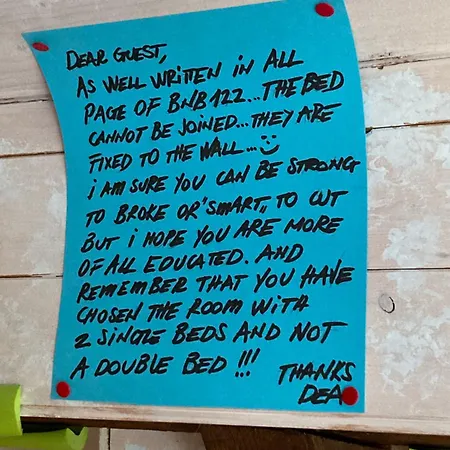 DEAR GUEST,
AS WELL WRITTEN IN ALL
PAGE OF BNB122...THE BED
CANNOT BE JOINED...THEY ARE
FIXED TO THE WALL...
i AM SURE YOU CAN BE STRONG
TO BROKE OR "SMART,, TO CUT
BUT i HOPE YOU ARE MORE
OF ALL EDUCATED. AND
REMEMBER THAT YOU HAVE
CHOSEN THE ROOM WITH
2 SINGLE BEDS AND NOT
A DOUBLE BED !!!
THANKS
DEA